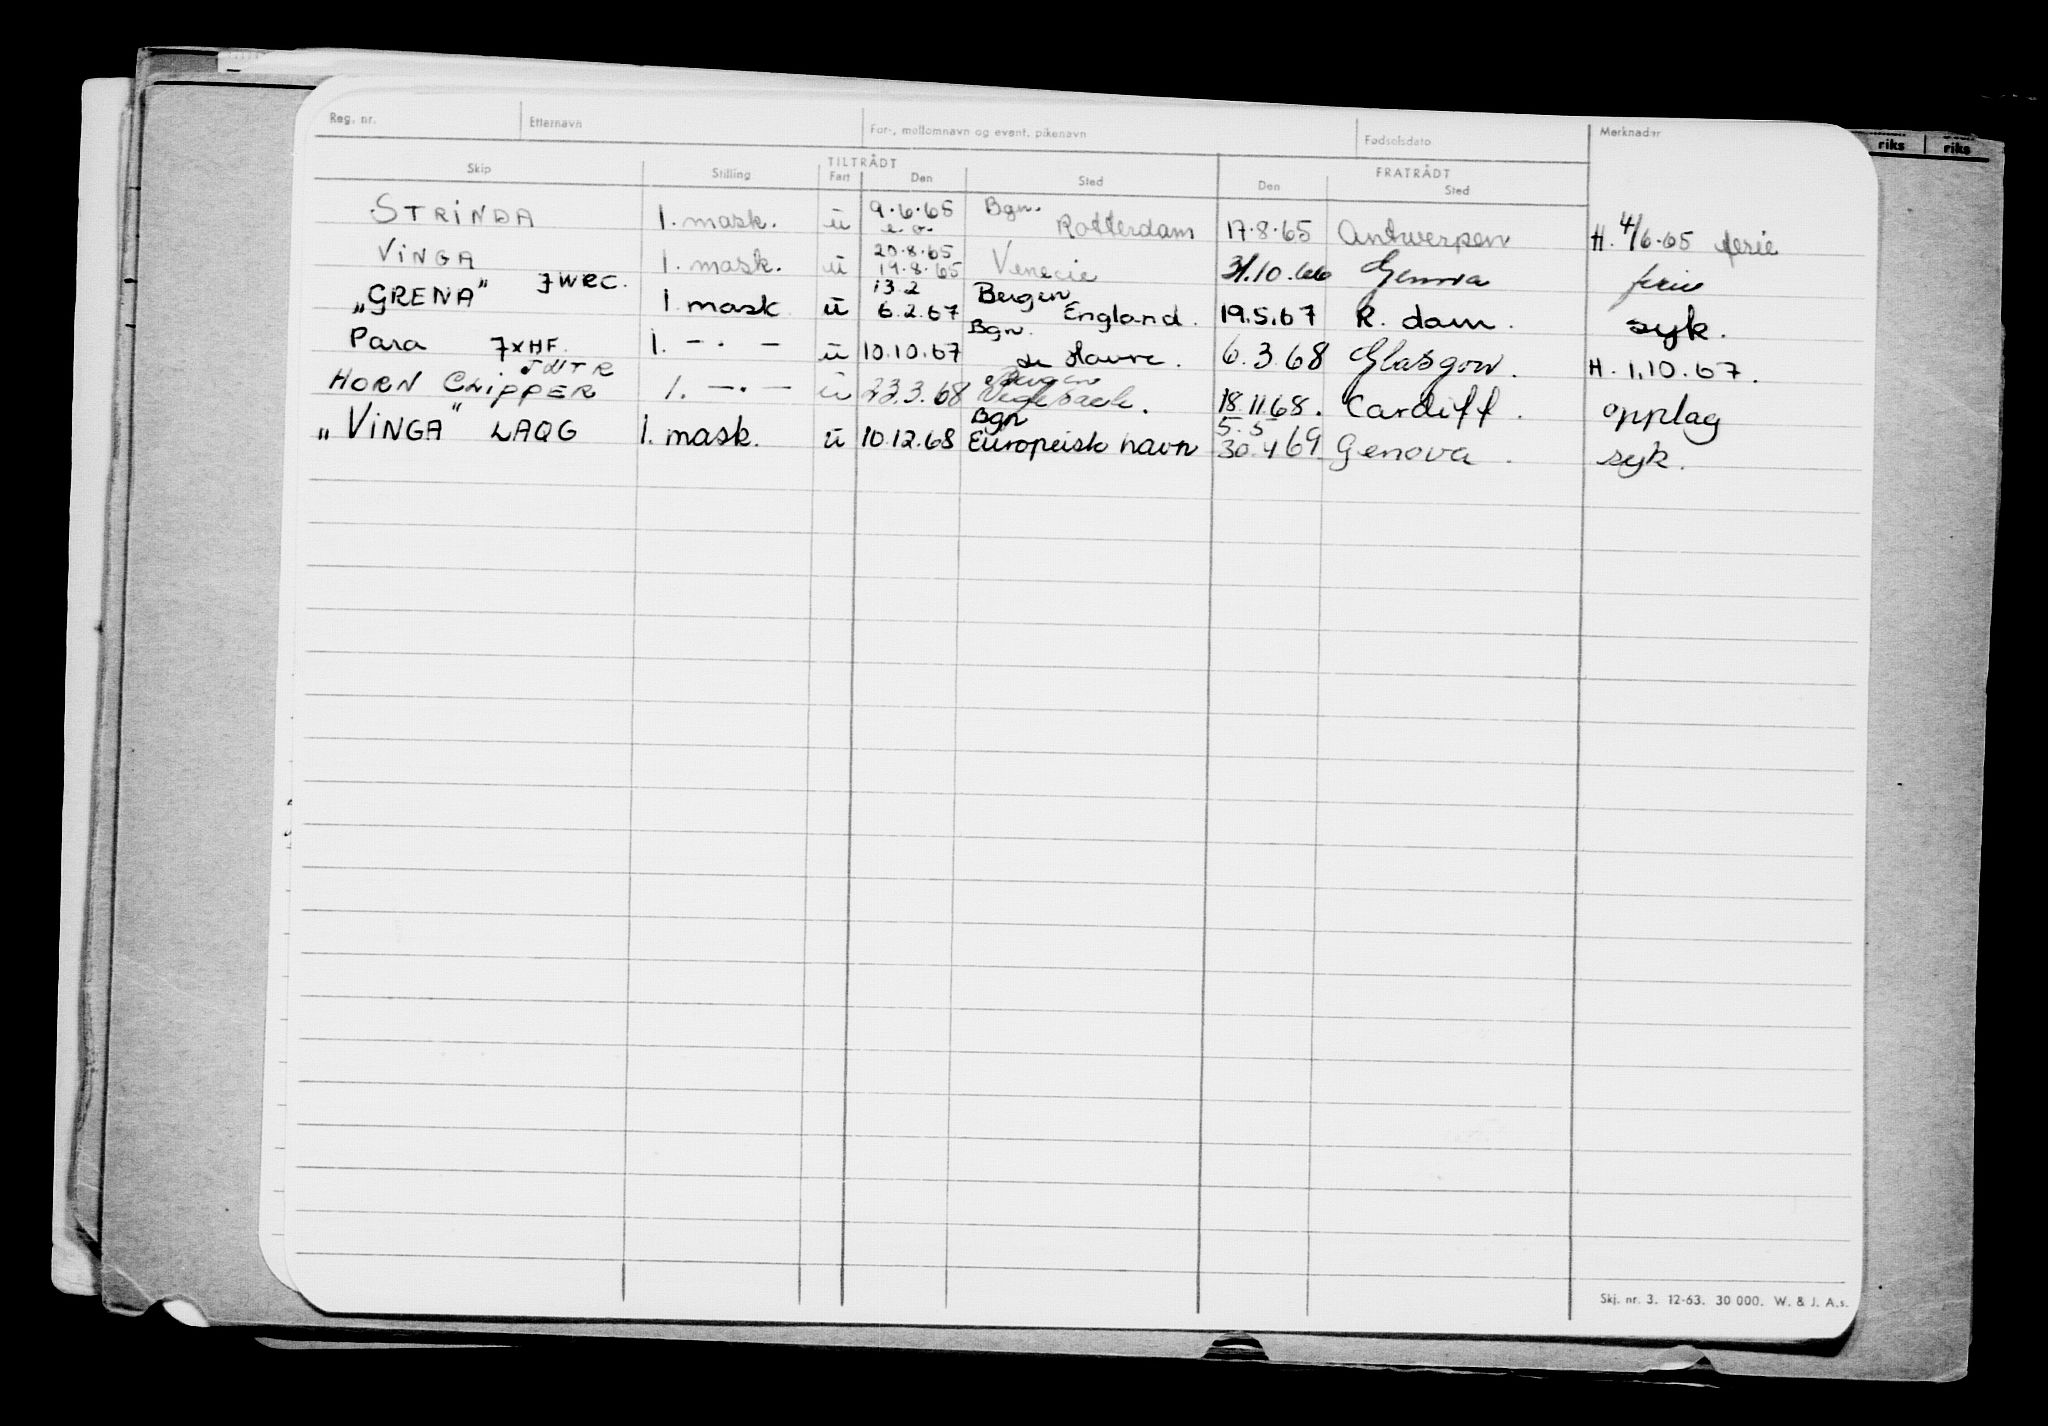 Reg. nr. Etternavn For-, mellomnavn og event. pikenavn Fødselsdato Merknader
riks riks
TILTRÅDT FRATRÅDT
Skip Stilling Fart Den Sted Den Sted
9.6.65 Bgn.
STRINDA 1. mask. ü e.o. Rotterdam 17.8.65 Antwerpen H. 4/6.65 ferie
20.8.65
VINGA 1. mask. ü 19.8.65 Venecie 31.10.66 Genova ferie
13.2 Bergen
"GRENA" JWRC. 1. mask ü 6.2.67 England. 19.5.67 R. dam. syk.
Bgn.
Para JXHF. 1. - . - ü 10.10.67 Le Havre. 6.3.68 Glasgow. H. 1.10.67.
Bergen
HORN CLIPPER 1. - . - ü 23.3.68 Vegesack. 18.11.68. Cardiff. opplag
Bgn 5.5
"VINGA" LAQG 1. mask. ü 10.12.68 Europeisk havn 30.4 69 Genova. syk.
Skj. nr. 3. 12-63. 30 000. W. & J. A.s.